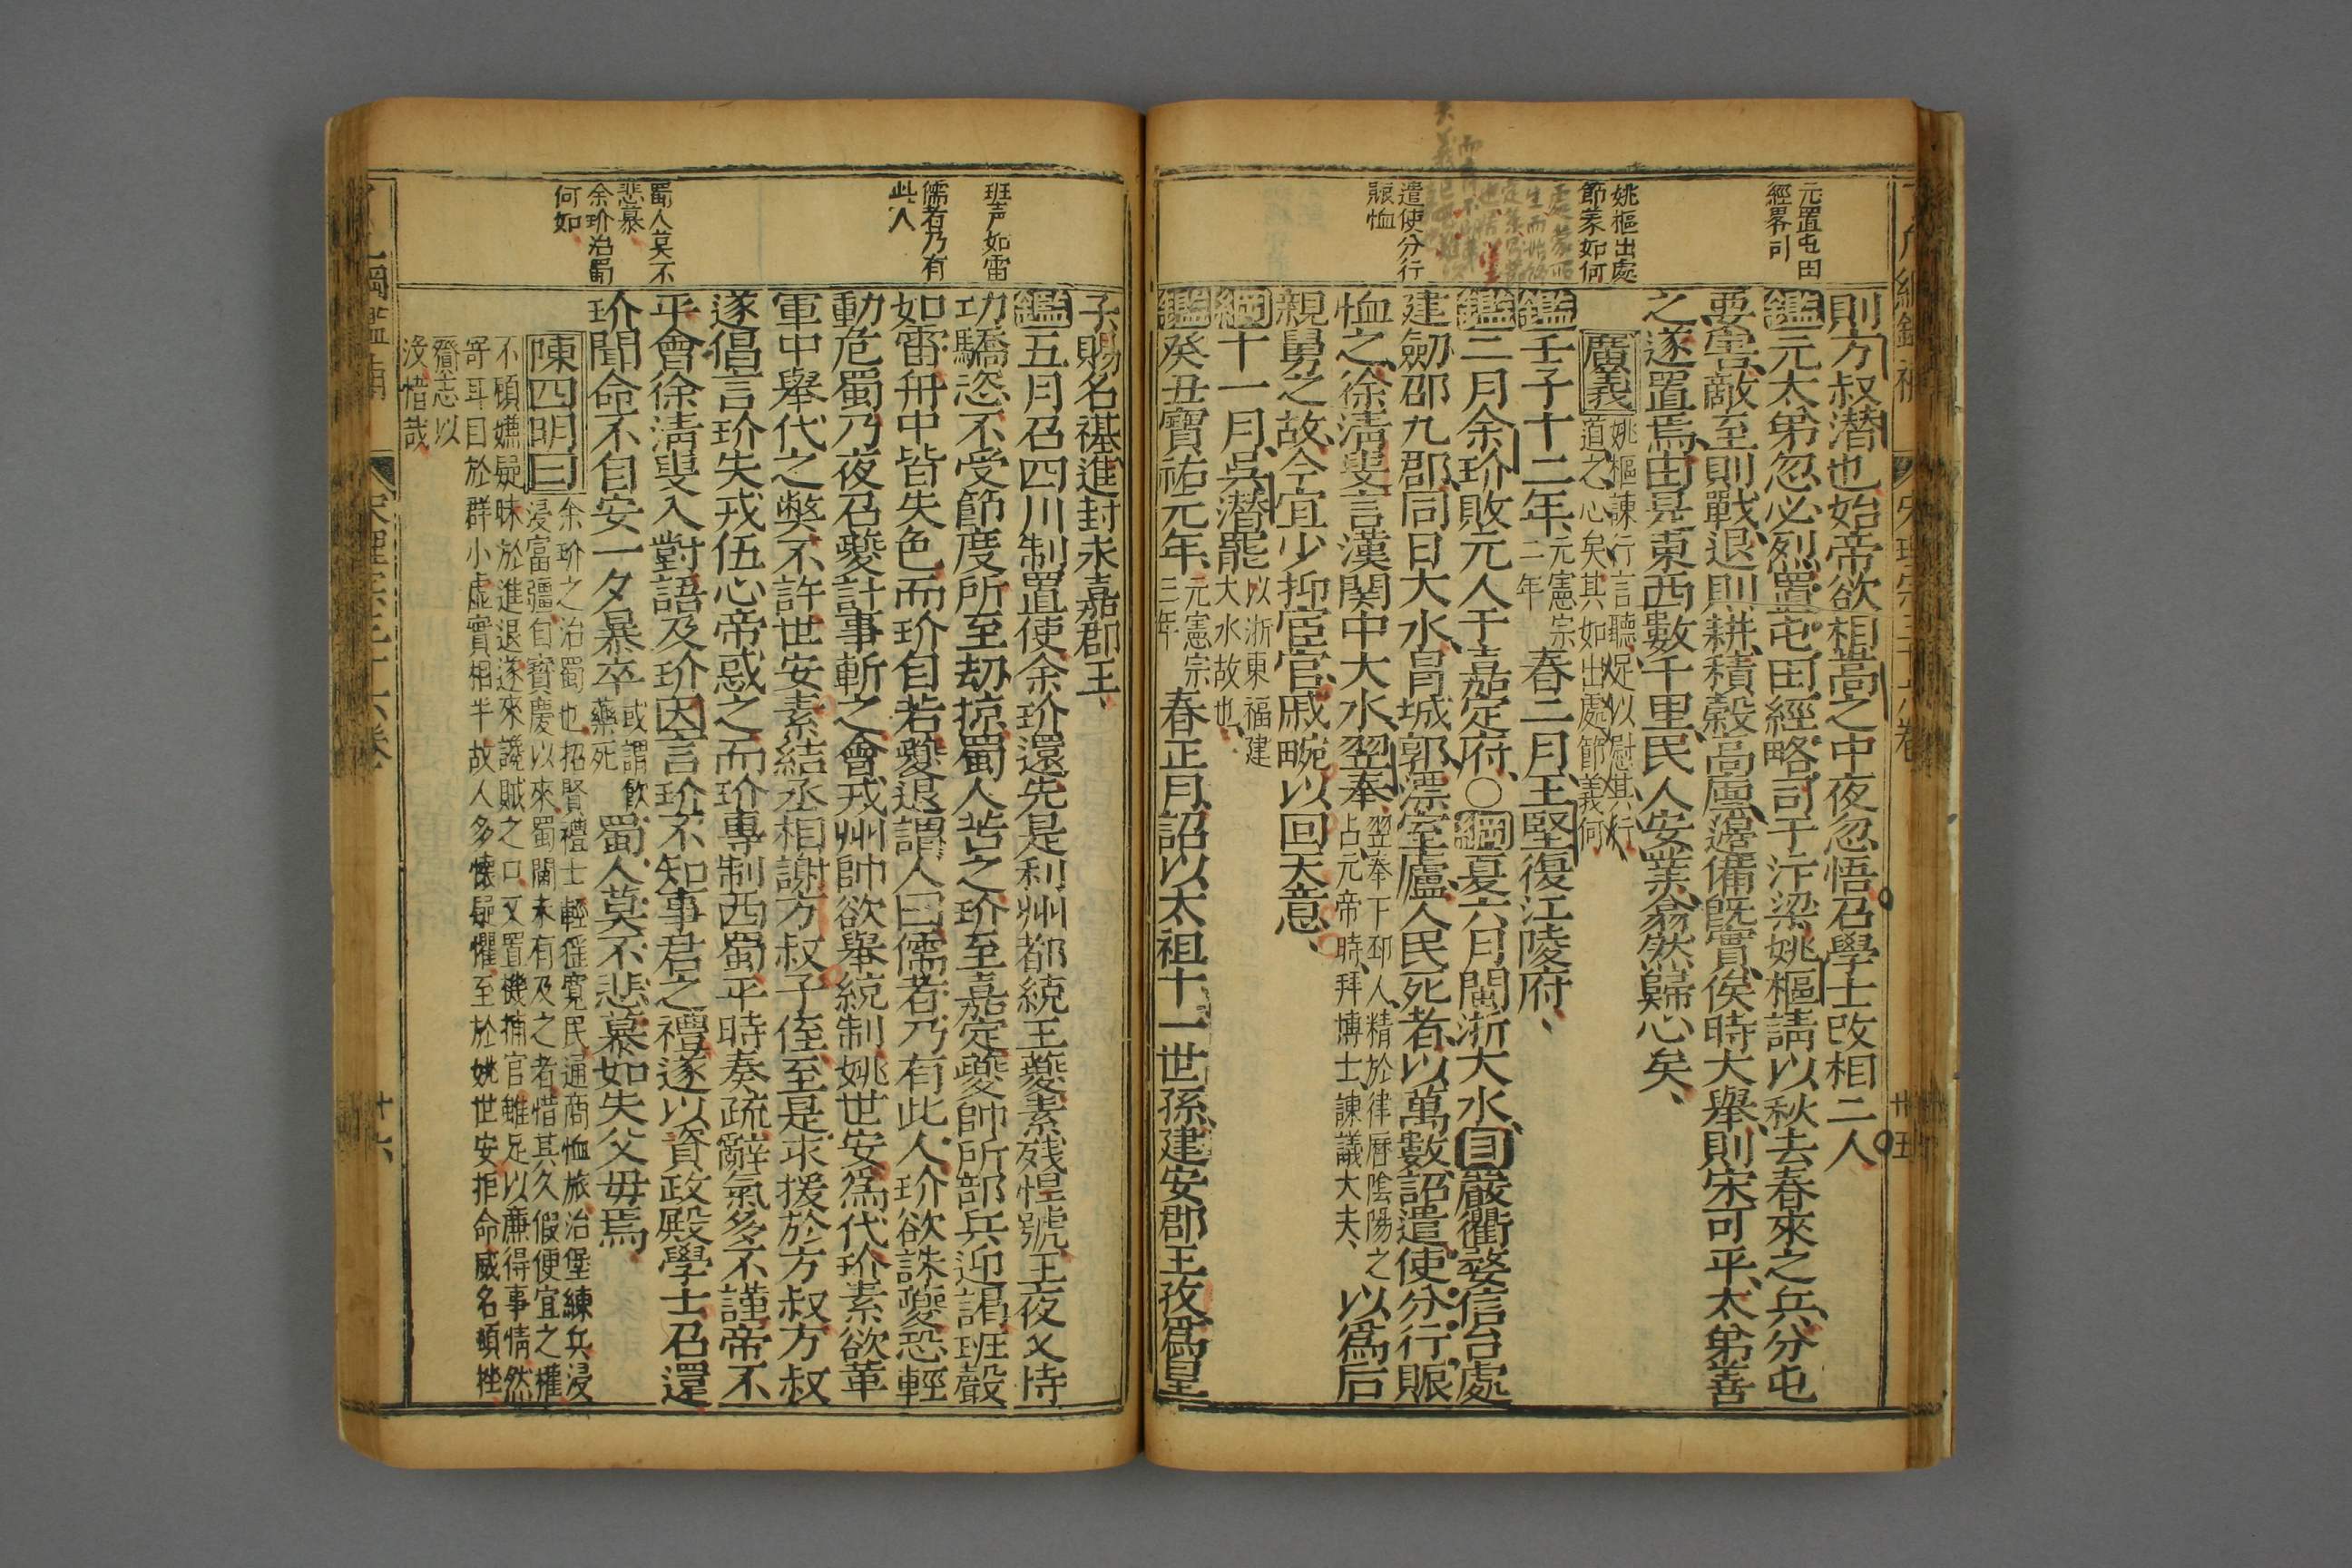 元置屯田
經畧司
姚樞出處
節義如何
遣使分行
賑恤
則方叔潜也始帝欲相葛之中夜忽悟召學士改相二人
鑑元太弟忽必烈置屯田經略司于汴梁姚樞請以秋去春來之兵分屯
要害敵至則戰退則耕積穀高廩邊備旣實俟時大舉則宋可平太弟善
之遂置焉由是東西數千里民人安業翕然歸心矣
廣義
姚樞諫行言聽足以慰其行
道之心矣其如出處節義何
鑑壬子十二年元憲宗二年春二月王堅復江陵府
鑑二月余玠敗元人于嘉定府○綱夏六月閩浙大水目嚴衢婺信台處
建劒邵九郡同日大水冒城郭漂室廬人民死者以萬數詔遣使分行賑
恤之徐淸叟言漢関中大水翌奉翌奉下邳人精於律曆陰陽之占元帝時拜博士諫議大夫以爲后
親舅之故今宜少抑宦官戚畹以回天意
綱十一月吳潜罷以浙東福建大水故也
鑑癸丑寶祐元年元憲宗三年春正月詔以太祖十一世孫建安郡王孜爲皇
班声如雷
儒者乃有
此人
蜀人莫不
悲慕
余玠治蜀
何如
子賜名禥進封永嘉郡王
鑑五月召四川制置使余玠還先是利州都統王夔素残悍號王夜叉恃
功驕恣不受節度所至刧掠蜀人苦之玠至嘉定夔帥所部兵迎謁班聲
如雷舟中皆失色而玠自若夔退謂人曰儒者乃有此人玠欲誅夔恐輕
動危蜀乃夜召夔計事斬之會戎州帥欲舉統制姚世安爲代玠素欲革
軍中舉代之弊不許世安素結丞相謝方叔子侄至是求援於方叔方叔
遂倡言玠失戎伍心帝惑之而玠專制西蜀平時奏疏辭氣多不謹帝不
平會徐淸叟入對語及玠因言玠不知事君之禮遂以資政殿學士召還
玠聞命不自安一夕暴卒或謂飮藥死蜀人莫不悲慕如失父母焉
陳四明曰
余玠之治蜀也招賢禮士輕徭寛民通商恤旅治堡練兵浸
浸富彊自寳慶以來蜀閫未有及之者惜其久假便宜之權
不頓嫌疑昧於進退遂來讒賊之口又置機捕官雖足以廉得事情然
寄耳目於群小虛實相半故人多懷疑懼至於姚世安拒命威名頓挫
齎志以
沒惜哉
宋理宗三十六卷
廿六